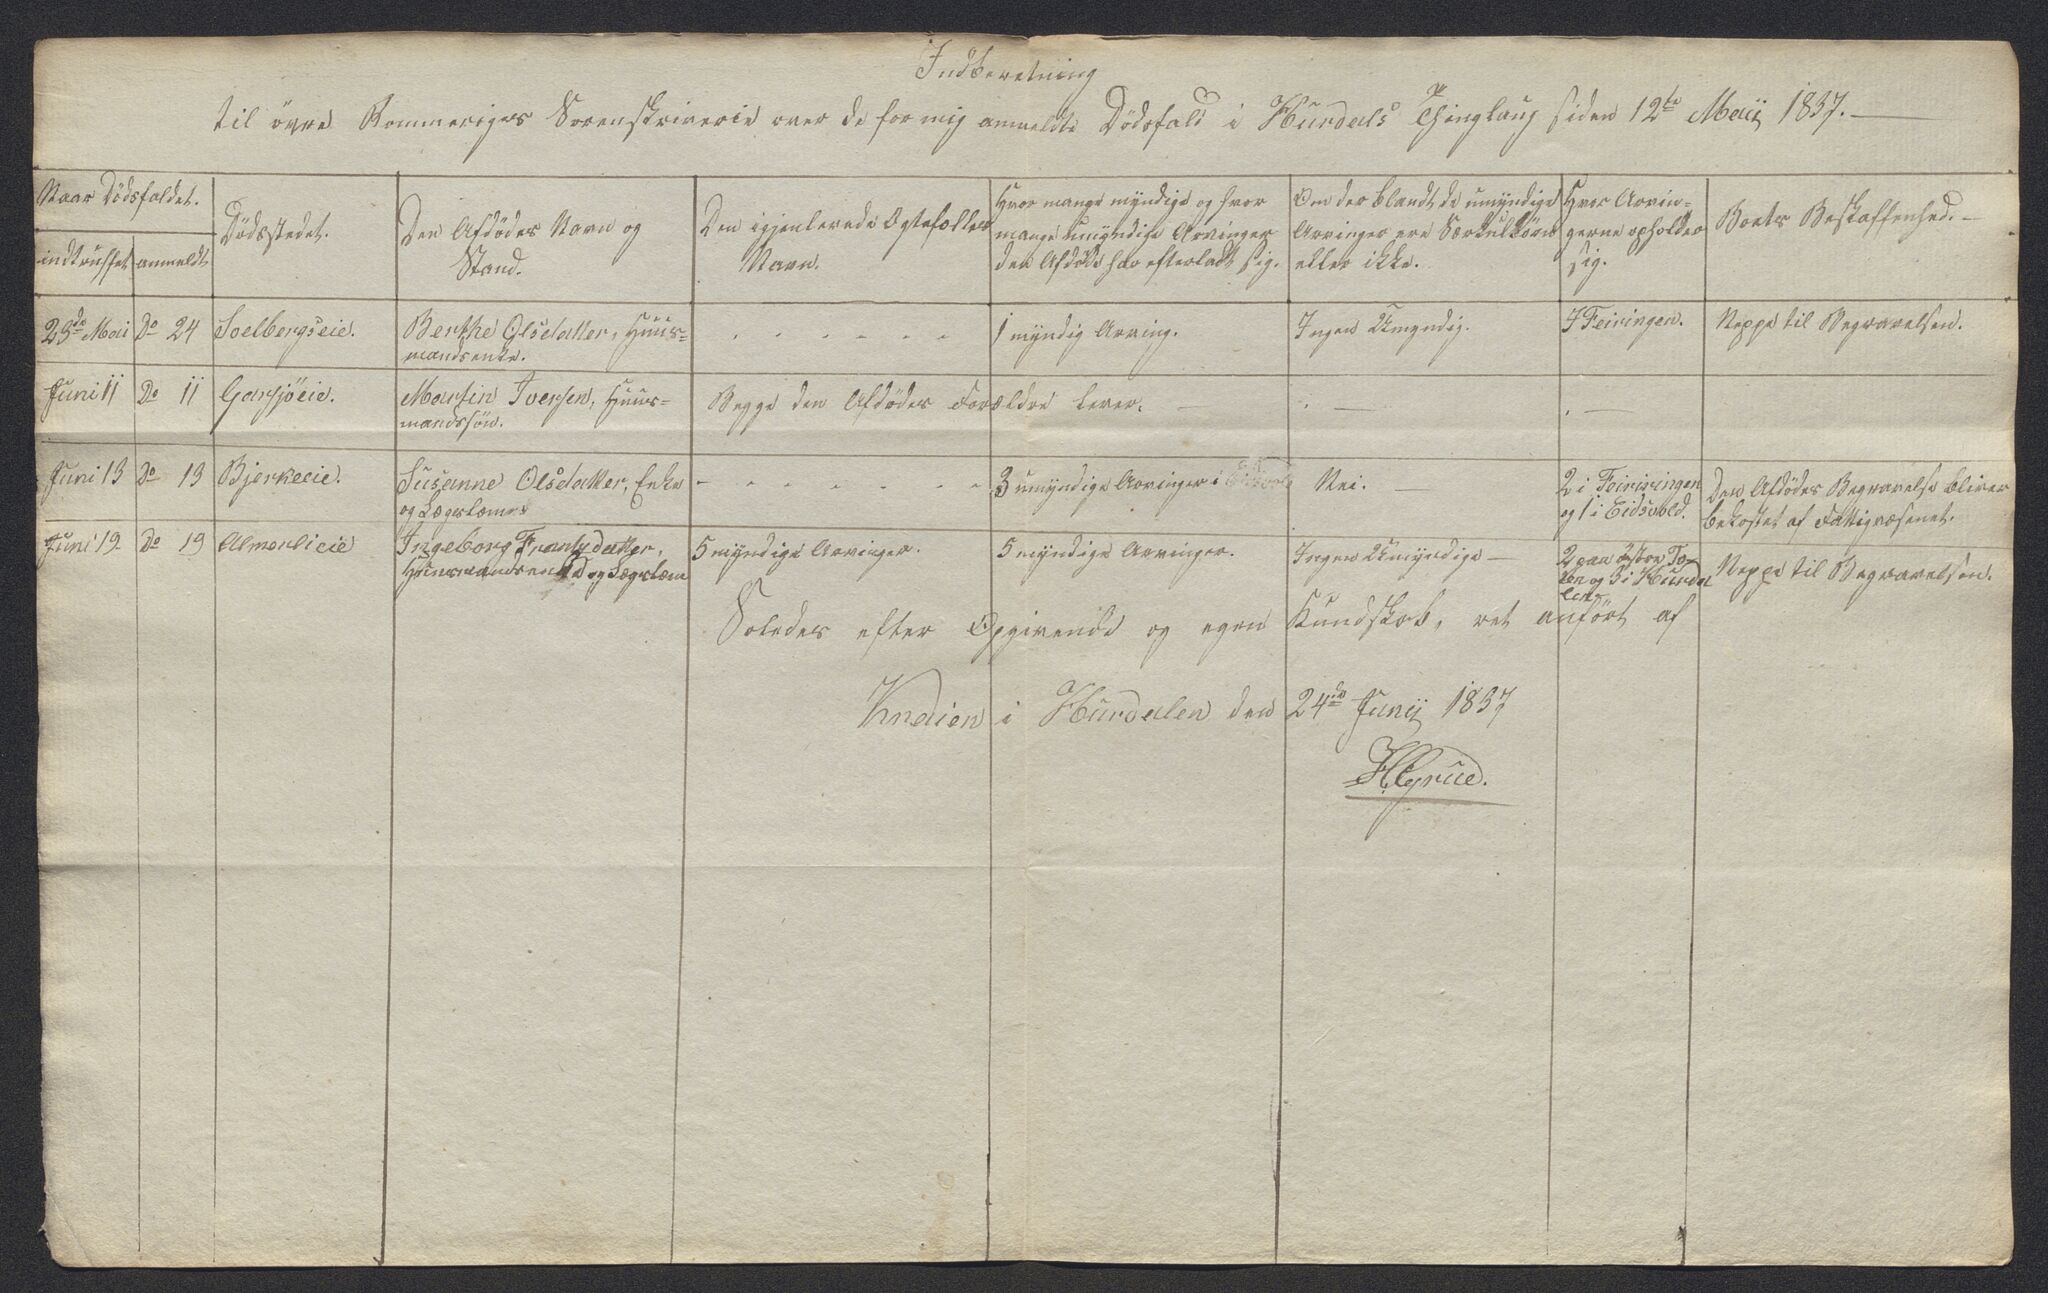 Indberetning
til övre Rommeriges Sorenskriverie over de for mig anmeldte Dödsfald i Hurdals Thinglaug siden 12te Maii 1837.
Naar Dödsfaldet.
indtruffet
anmeldt
Dödsstedet.
Den Afdödes Navn og
Stand.
Den igjenlevende Ægtefælles
Navn.
Hvor mange myndige og hvor
mange umyndige Arvinger
den Afdöde har efterladt sig.
Om der blandt de umyndige
Arvinger ere Særkulbörn
eller ikke.
Hvor Arvin-
gerne opholder
sig.
Boets Beskaffenhed.
23de Mai
Do 24
Soelbergseie.
Berthe Olsdatter, Huus-
mandsenke.
1 myndig Arving.
Ingen Umyndig.
I Feiringen.
Neppe til Begravelsen.
Juni 11
Do 11
Garsjöeie.
Martin Iversen, Huus-
mandssön.
Begge den Afdödes Forældre lever.
Juni 13
Do 13
Bjerkeeie.
Susanne Olsdatter, Enke
og Lægslem
3 umyndige Arvinger i
Nei.
2 i Feiriringen
og 1 i Eidsvold.
Den Afdödes Begravelse bliver
bekostet af Fattigvæsenet.
Juni 19
Do 19
Almenlieie
Ingeborg Frantzdatter,
Huusmandsenke og Lægslem
5 myndige Arvinger.
5 myndige Arvinger.
Ingen Umyndige
2 paa östre To-
ten og 3 i Hurda
len
Neppe til Begravelsen.
Soledes efter Opgivende og egen Kundskab, ret anfört af
Knaien i Hurdalen den 24de Junii 1837
HGrue.